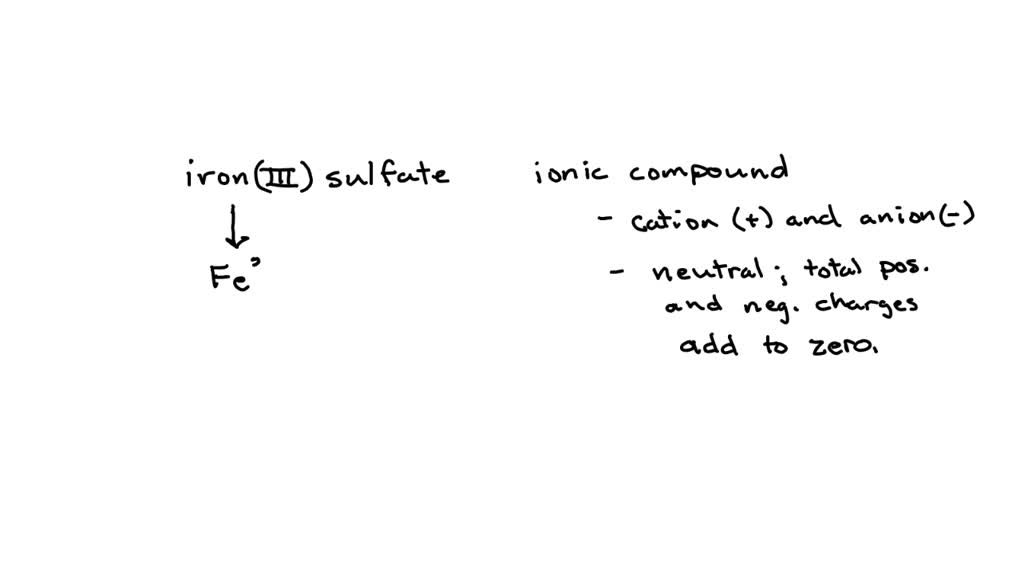 iron(III) sulfate
ionic compound
- cation (+) and anion(-)
Fe
- neutral; total pos.
and neg. charges
add to zero.